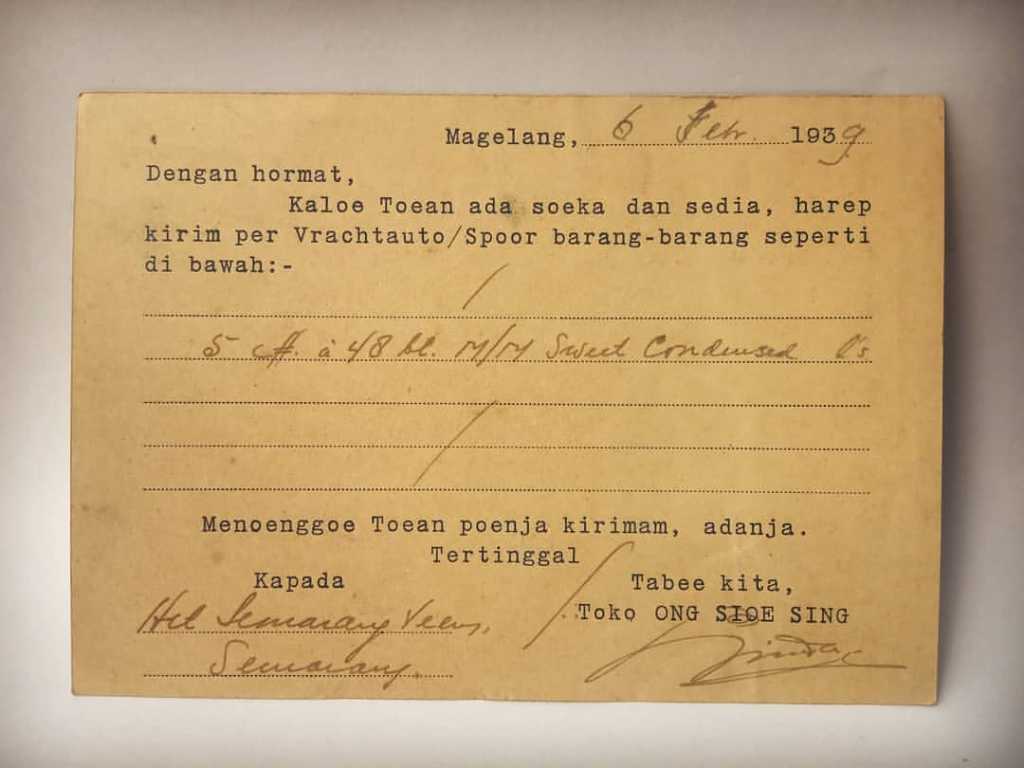 Magelang, 6 Febr. 1939
Dengan hormat,
Kaloe Toean ada soeka dan sedia, harep
kirim per Vrachtauto/Spoor barang-barang seperti
di bawah:-
5 à 48 bl. M/M Sweet Condensed
Menoenggoe Toean poenja kirimam, adanja.
Tertinggal
Kapada
Tabee kita,
Toko ONG SIOE SING
Het Semarang Veem,
Semarang.